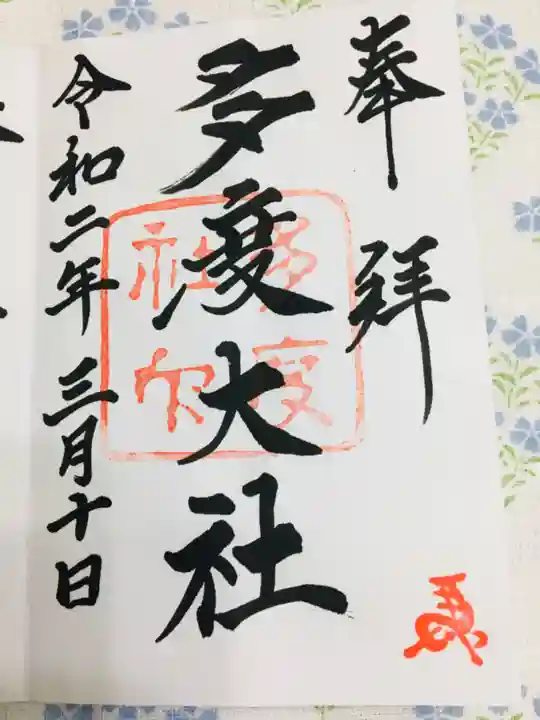 奉拝
多度大社
多度
社印
令和二年三月十日